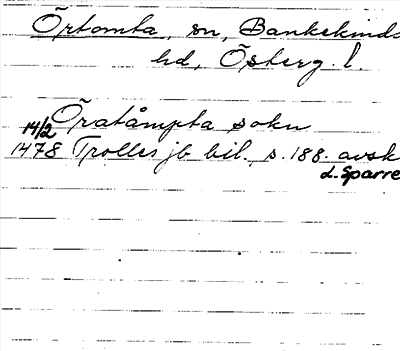 Örtomta, sn, Bankekinds
hd, Österg. l.
Öratåmpta sokn
14/2
1478 Trolles jb bil. s. 188. avsk
L. Sparre